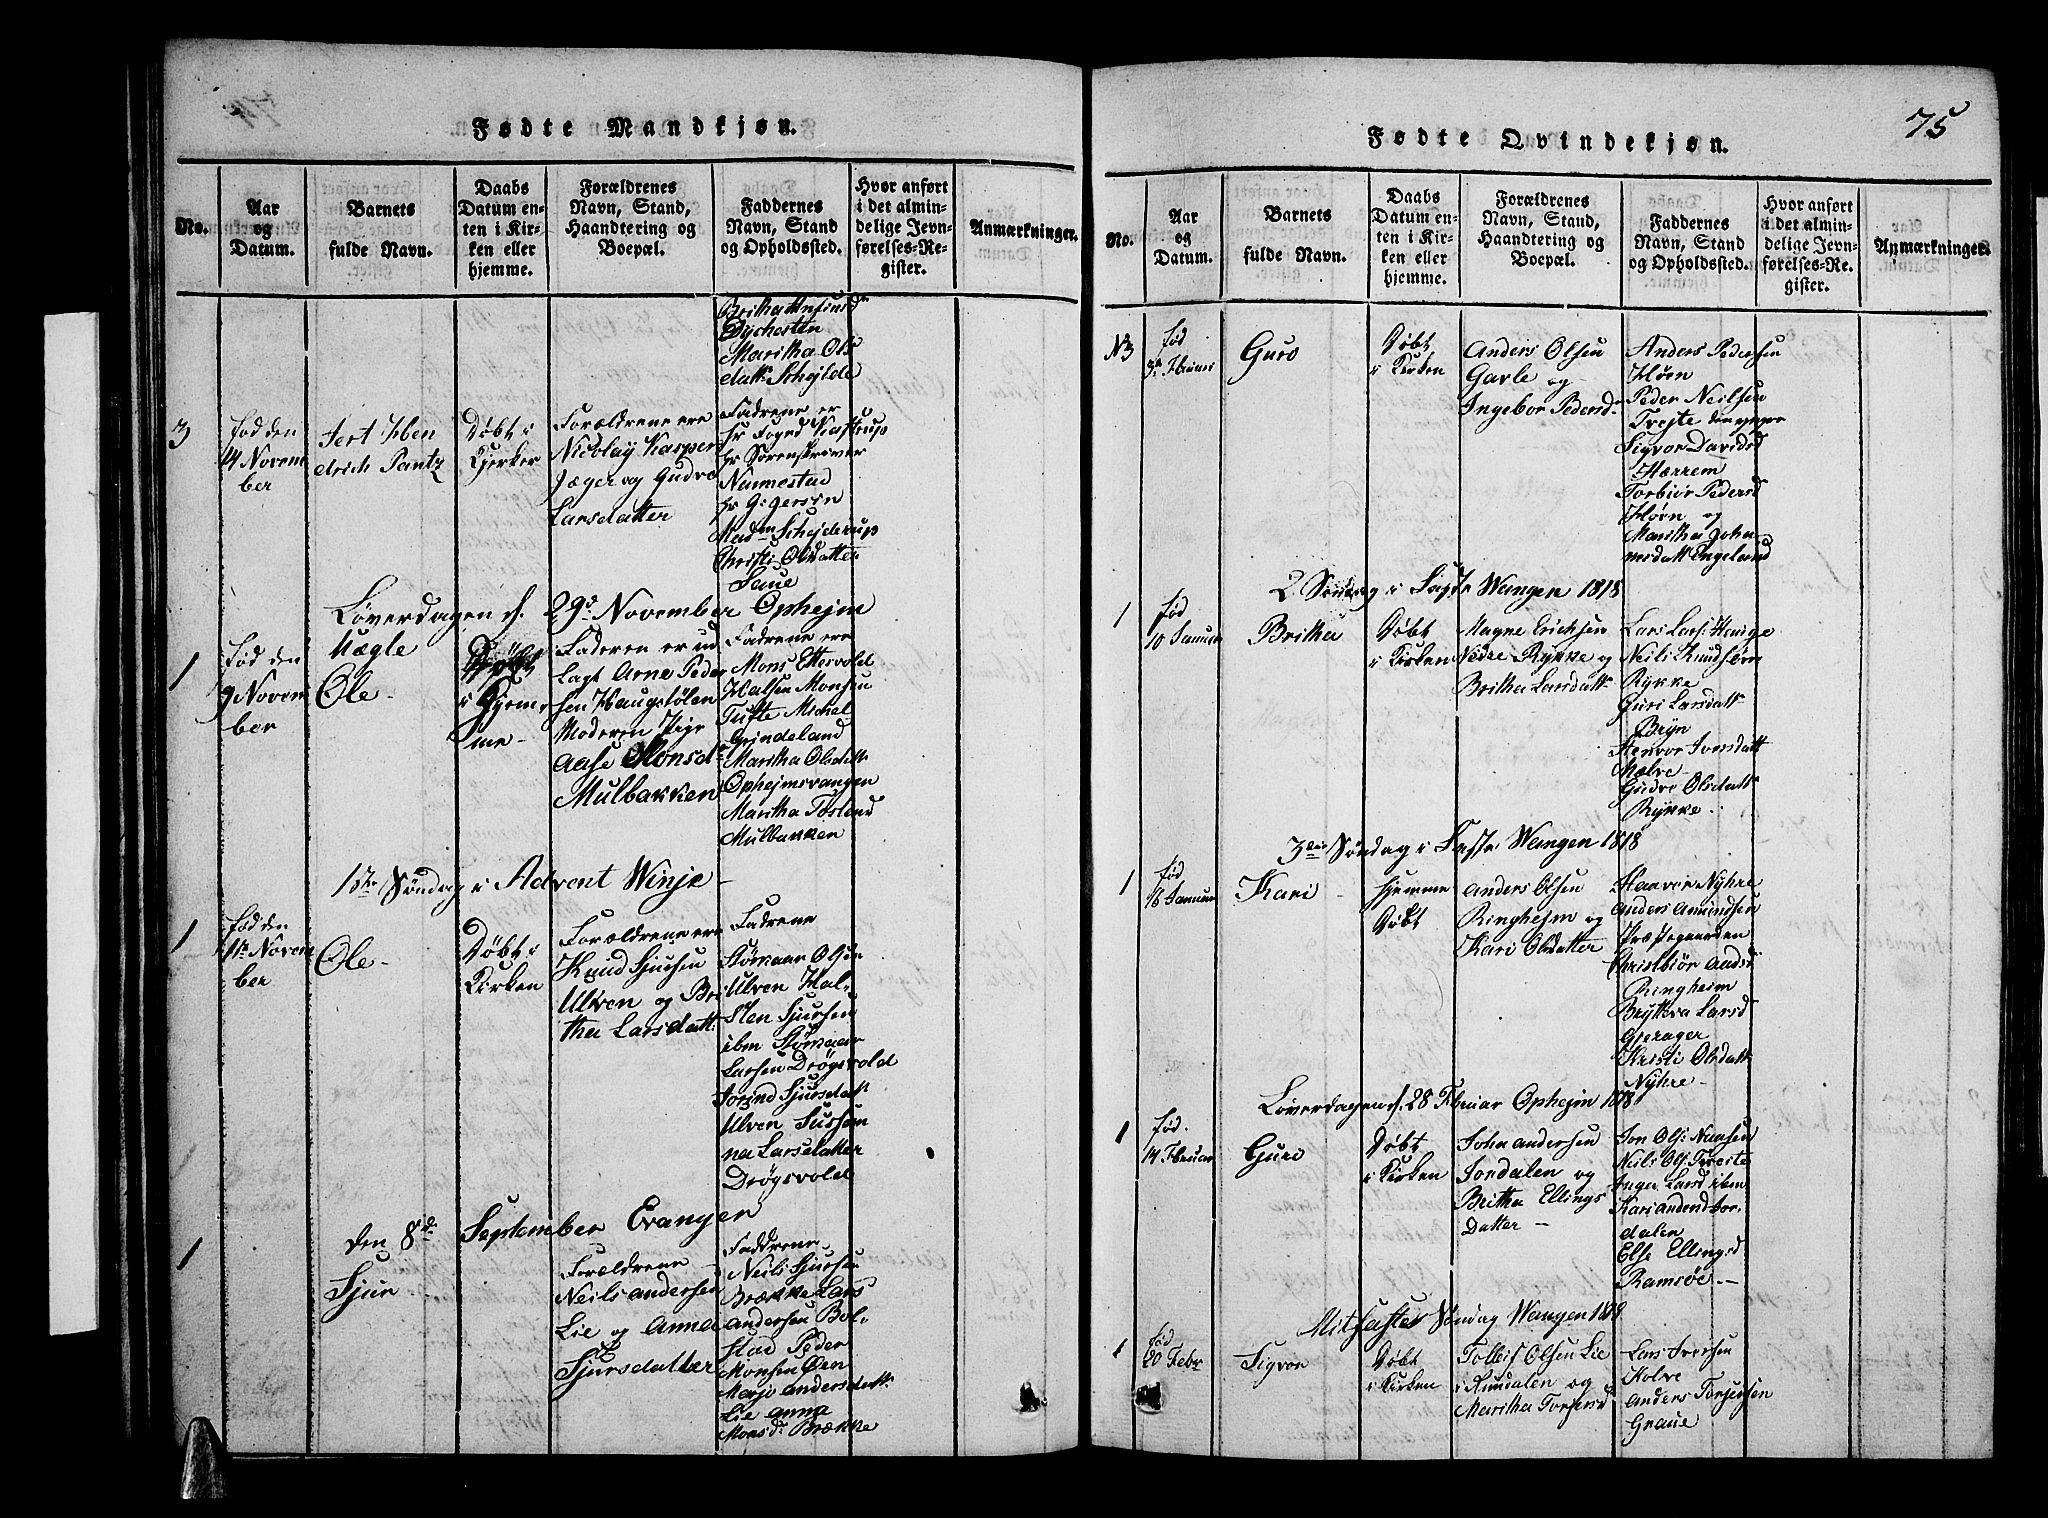 Fødte Mandkjøn.
No.
Aar
og
Datum.
Barnets
fulde Navn.
Daabs
Datum en-
ten i Kir-
ken eller
hjemme.
Forældrenes
Navn, Stand,
Haandtering og
Boepæl.
Faddernes
Navn, Stand
og Opholdssted.
Hvor anført
i det almin-
delige Jevn-
førelses-Re-
gister.
Anmærkninger.
Dychesten
Maritha Ols
datter
3
fød den
14 Novem
ber
drich Pantz
Døbt i
Kjerker
Forældrene ere
Nicolay Kasper
Jæger og Gudve
Larsdatter
Fadrene er
Hr Foged Kastrup
Hr Sorenskriver
Nummestad
Christi Olsdatter
Saue
Løverdagen d. 29de November Ophejm
1
fød den
9 Novem
ber
Uægte
Ole
Døbt
i Hjem
me
Faderen er ud
lagt Arne Peder
sen Haugstølen
Moderen Pige
Aase Monsdr
Mulbakken
Fadrene ere
Mons Ettesvold
Halsen Monsen
Tufte Michel
Grindeland
Maritha Olsdatt
Ophejmsvangen
Maritha
Mulbakken
1ste Søndag i Advent Winje
1
fød den
Novem
ber
Ole
Døbt i
Kirken
Forældrene ere
Knud Sjursen
Ulven og Bri
tha Larsdatt:
Fadrene
Størkaar Olsen
Ulven Hal-
sten Sjursen
ibm
Larsen Drøgsvold
Sjursdatt
Ulven Sussan
na Larsdatter
Drøgsvold
Den 8de September Evanger
1
Sjur
Forældrene
Neils Andersen
Lie og Anna
Sjursdatter
Faddrene
Neils Sjursen
Brække Lars
Andersen Bol-
stad Peder
Monsen Øen
Marje Andersdatt:
Lie Anna
Monsdr Brække
75
Fødte Qvindekjøn.
No.
Aar
og
Datum.
Barnets
fulde Navn.
Daabs
Datum en-
ten i Kir-
ken eller
hjemme.
Forældrenes
Navn, Stand,
Haandtering og
Boepæl.
Faddernes
Navn, Stand
og Opholdssted.
Hvor anført
i det almin-
delige Jevn-
førelses-Re-
gister.
Anmærkninger.
N3
fød
Februari
Guro
Døbt
i Kirken
Anders Olsen
Gavle og
Ingebor Pedersd
Anders Pedersen
Høen
Peder Neilsen
Trejte den yngre
Sigvor Davidsd
Hærrem
Torbiør Pedersd
Høen og
Maritha Johan
nesdatt Engeland
2 Søndag i Faste Wangen 1818
1
fød
10 Januar
Britha
Døbt
i Kirken
Magne Erichsen
Nedre Rykke og
Britha Larsdatt
Neils Knudsen
Rykke
Guri Larsdatt
Bryn
Mælve
Gudve Olsdatt
Rykke
3die Søndag i Faste Wangen 1818
1
fød
18 Januar
Kari
Hjemme
Døbt
Anders Olsen
Ringhejm og
Kari Olsdatter
Nyhre
Anders Amundsen
Præstegaarden
Christbiør Andsd
Ringheim
Brytteva Larsd
Gjerager
Kristi Olsdatt
Nyhre
Løverdagen d. 28 Februar Ophejm 1818
1
fød.
14 Februar
Guri
Døbt
i Kirken
John Andersen
Jordalen og
Britha Ellings
Datter
Jon Ols:
Neils Ols:
Inger Larsd ibm
Kari Andersd Jor-
dalen
Else Ellingsd
Ramsøe
Mitfaste Søndag Wangen 1818
1
fød
20 Febr
Sigvor
Døbt
i Kirken
Tolleif Olsen Lie
i Rundalen og
Maritha Torgersd
Lars Iversen
Kolve
Anders Torjersen
Graue